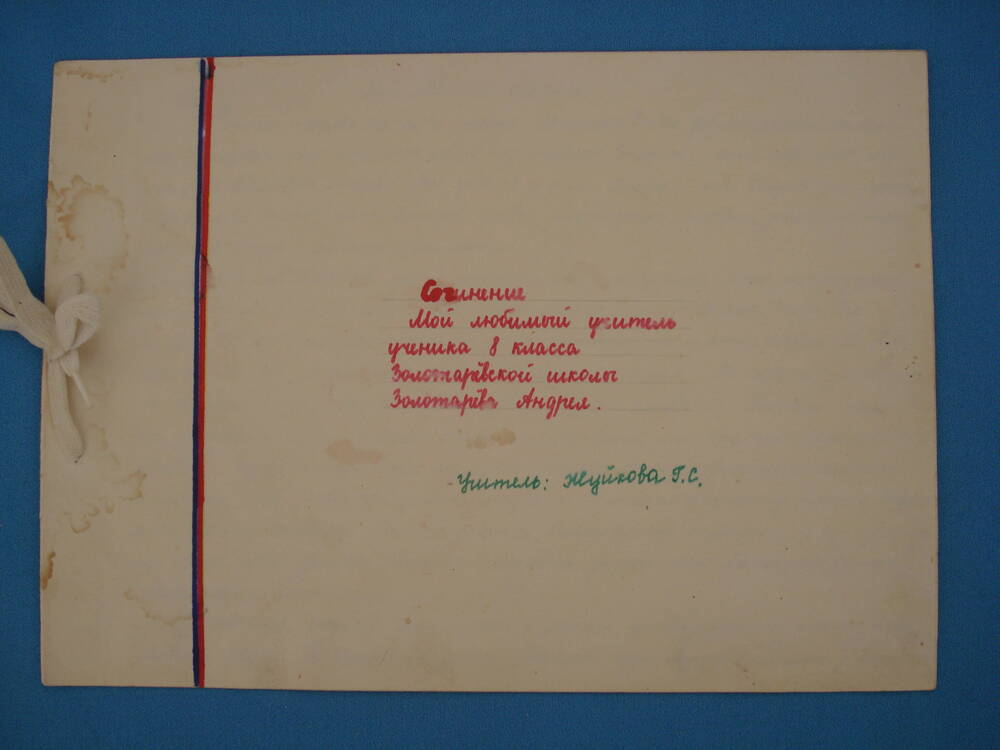 Сочинение
Мой любимый учитель
ученика 8 класса
Золотарёвской школы
Золотарёва Андрея.
Учитель: Жуйкова Г.С.